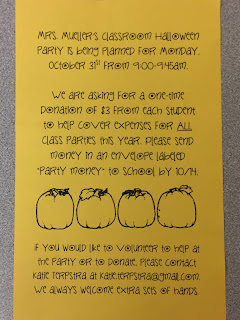 Mrs. Mueller's classroom Halloween
Party is being planned for Monday,
October 31st from 9:00-9:45am.
We are asking for a one-time
donation of $3 from each student
to help cover expenses for ALL
class parties this year. Please send
money in an envelope labeled
"Party money" to school by 10/14.
If you would like to volunteer to help at
the party or to donate, please contact
Katie Terpstra at katie.terpstra@gmail.com.
We always welcome extra sets of hands.